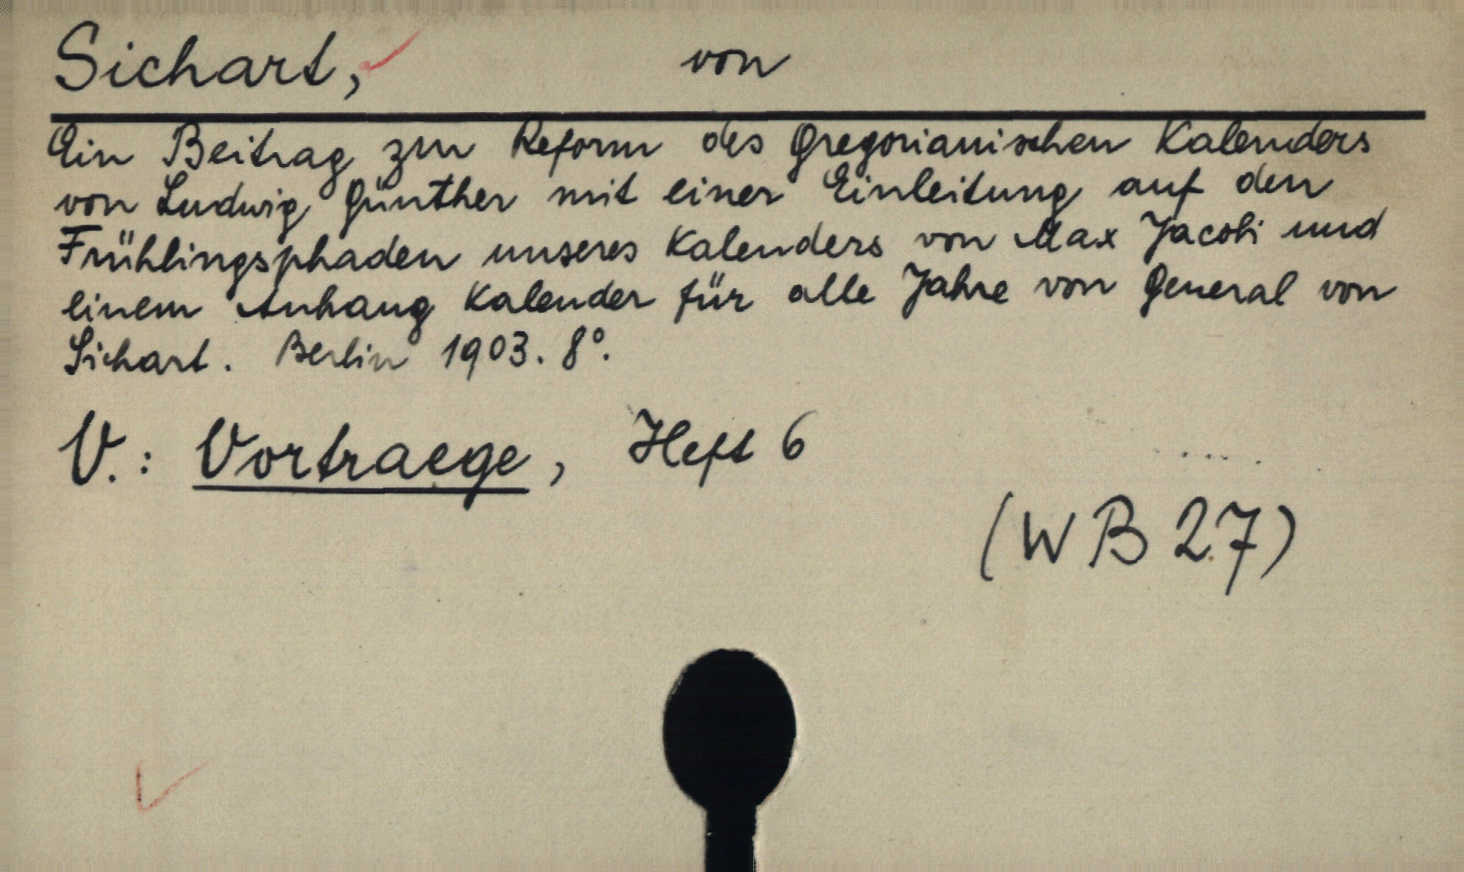 Sichart, von
Ein Beitrag zur Reform des Gregorianischen Kalenders
von Ludwig Günther mit einer Einleitung auf den
Frühlingsphaden unseres Kalenders von Max Jacobi und
einem Anhang Kalender für alle Jahre von General von
Sichart. Berlin 1903. 8°.
V.: Vortraege, Heft 6
(WB 27)